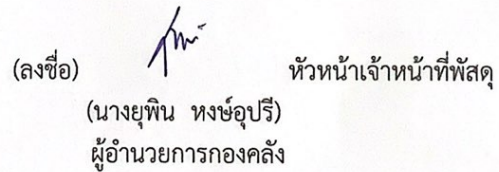 (ลงชื่อ) หัวหน้าเจ้าหน้าที่พัสดุ
(นางยุพิน หงษ์อุปรี)
ผู้อำนวยการกองคลัง